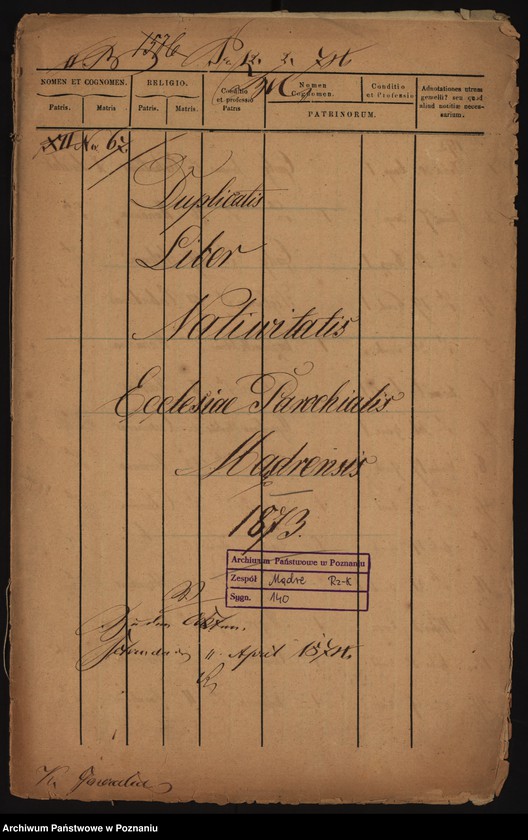 1576
NOMEN ET COGNOMEN. RELIGIO. Conditio et professio Patris Nomen Cognomen. Conditio et Professio Adnotationes utrum gemelli? seu quid aliud notitiæ necessarium.
Patris. Matris Patris. Matris. PATRINORUM.
XII No 67.
Duplicatis
Liber
Nativitatis
Ecclesiae Parochialis
Mądrensis
1873.
Archiwum Państwowe w Poznaniu
Zespół Mądre Rz-K
Sygn. 140
Zu den Akten.
April 1874
Archiwum Państwowe w Poznaniu